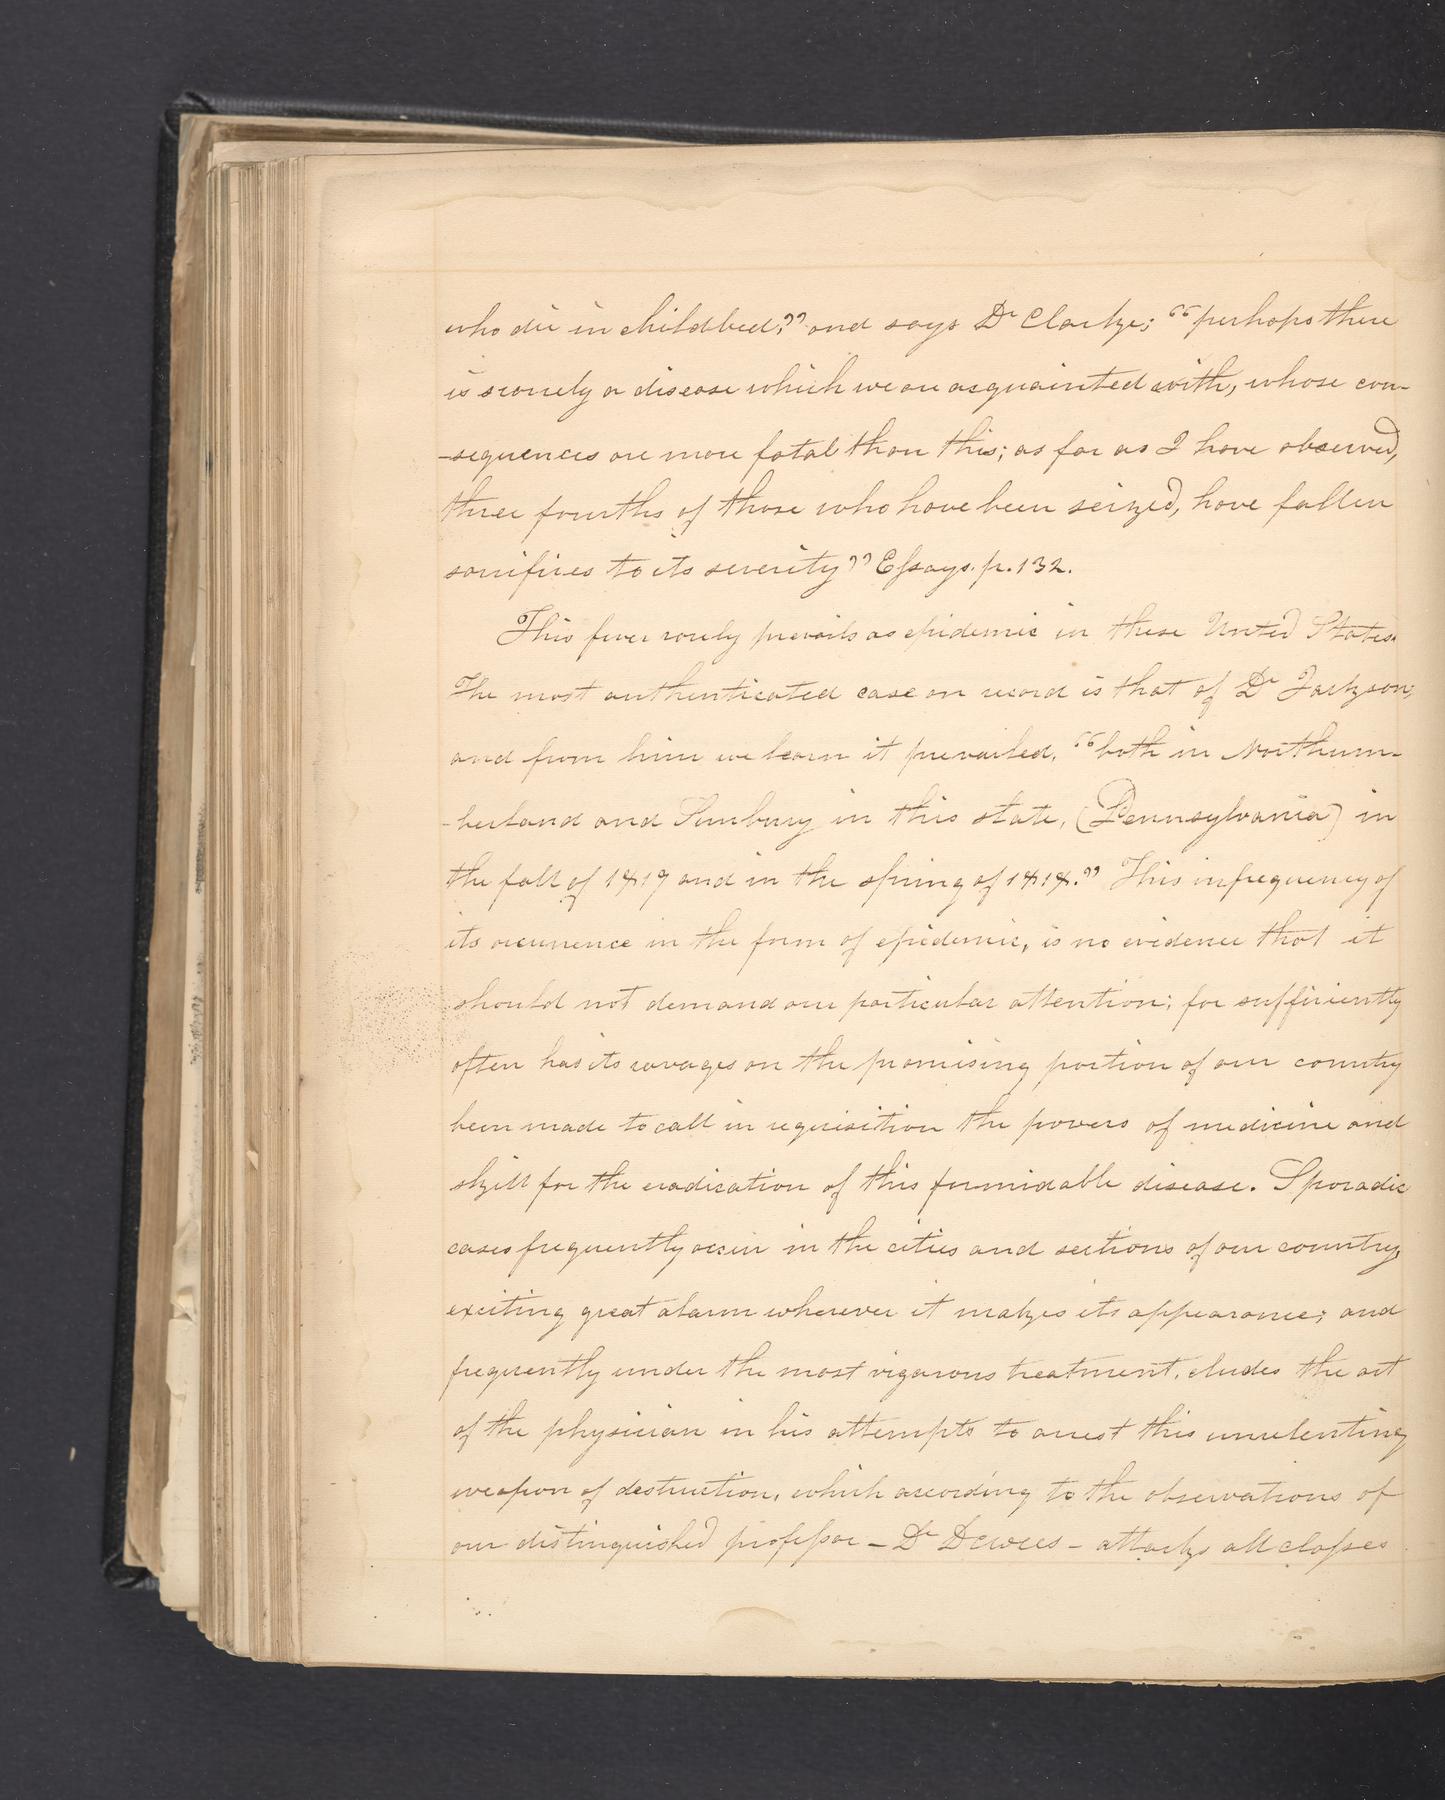 who die in childbed;” and says Dr Clarke; “perhaps there
is scarcely a disease which we are acquainted with, whose con-
-sequences are more fatal than this; as far as I have observed,
three fourths of those who have been seized, have fallen
sacrifices to its severity” Essays. p. 132.
This fever rarely prevails as epidemic in these United States.
The most authenticated case on record is that of Dr Jackson;
and from him we learn it prevailed, “both in Northum-
-berland and Sunbury in this state, (Pennsylvania) in
the fall of 1817 and in the spring of 1818.” This infrequency of
its occurrence in the form of epidemic, is no evidence that it
should not demand our particular attention; for sufficiently
often has its ravages on the promising portion of our country
been made to call in requisition the powers of medicine and
skill for the eradication of this formidable disease. Sporadic
cases frequently occur in the cities and sections of our country,
exciting great alarm wherever it makes its appearance; and
frequently under the most vigorous treatment, eludes the art
of the physician in his attempts to arrest this unrelenting
weapon of destruction, which according to the observations of
our distinguished professor – Dr Dewees – attacks all classes